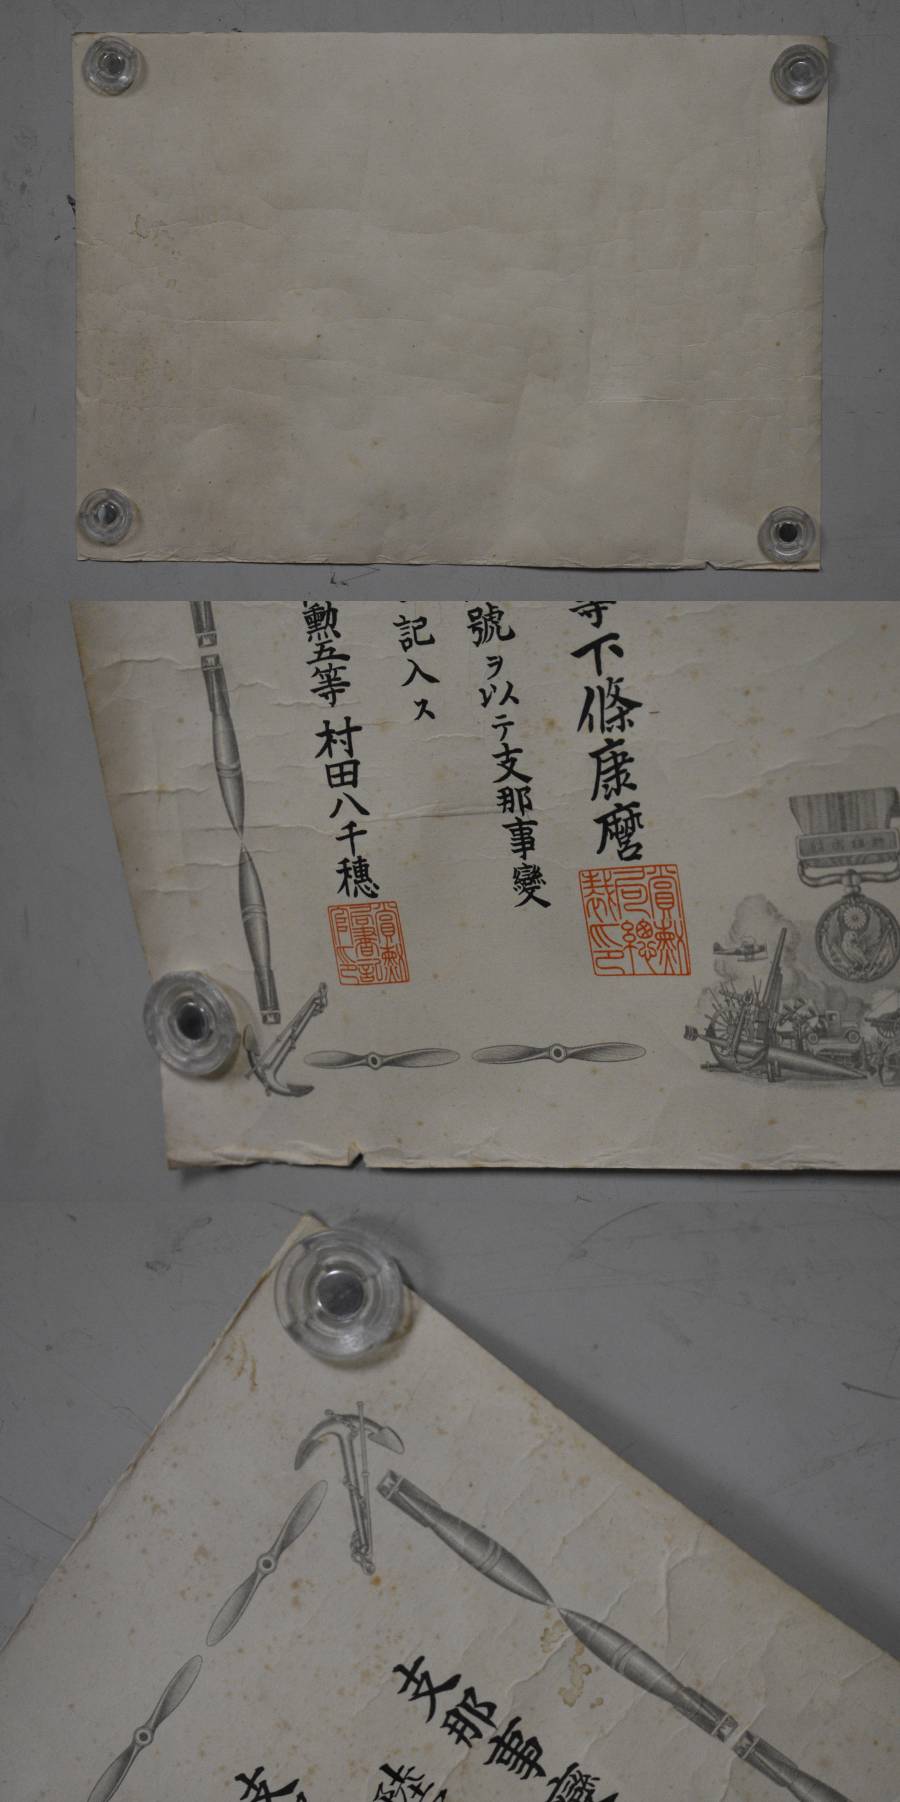 等下條康麿
賞勲
局總
裁印
號ヲ以テ支那事變
記入ス
勲五等村田八千穗
賞勲
局書記
官印
支那事變